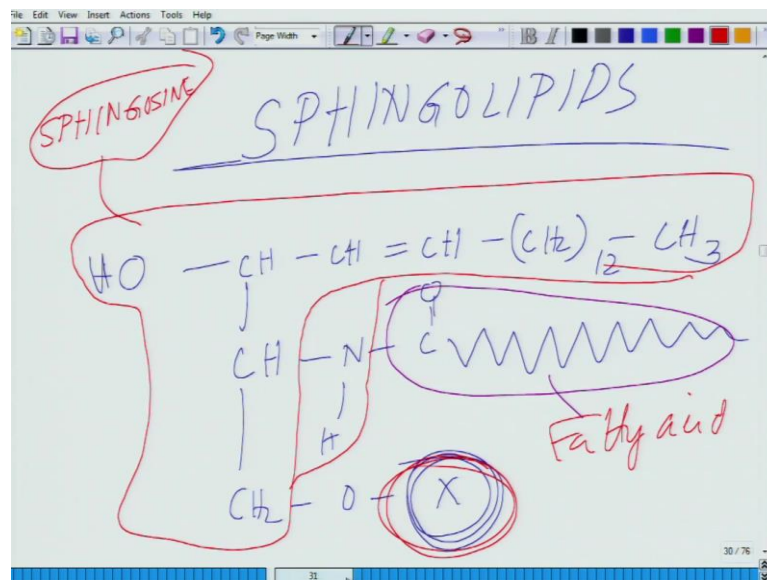 File Edit View Insert Actions Tools Help
Page Width
B I
SPHINGOSINE
SPHINGOLIPIDS
HO — CH — CH = CH — (CH2)12 — CH3
O
CH — N — C
H
Fatty acid
CH2 — O — X
30 / 76
31